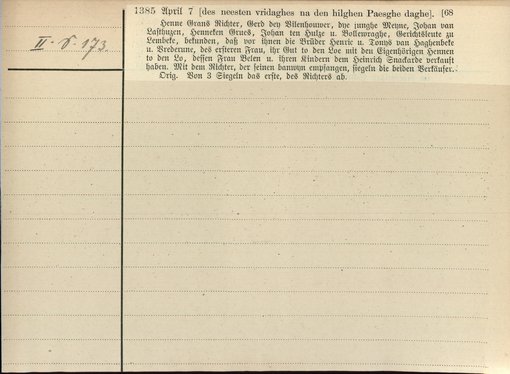 II. δ. 173
1385 April 7 [des neesten vridaghes na den hilghen Paesghe daghe]. [68
Henne Grans Richter, Gerd dey Vilenhouwer, dye junghe Meyne, Johan van
Lasthuzen, Henneken Grues, Johan ten Hulze u. Bollewraghe, Gerichtsleute zu
Lembeke, bekunden, daß vor ihnen die Brüder Henric u. Tonys van Haghenbeke
u. Brederune, des ersteren Frau, ihr Gut to den Loe mit den Eigenhörigen Hennen
to den Lo, dessen Frau Belen u. ihren Kindern dem Heinrich Snackarde verkauft
haben. Mit dem Richter, der seinen banwyn empfangen, siegeln die beiden Verkäufer.
Orig. Von 3 Siegeln das erste, des Richters ab.